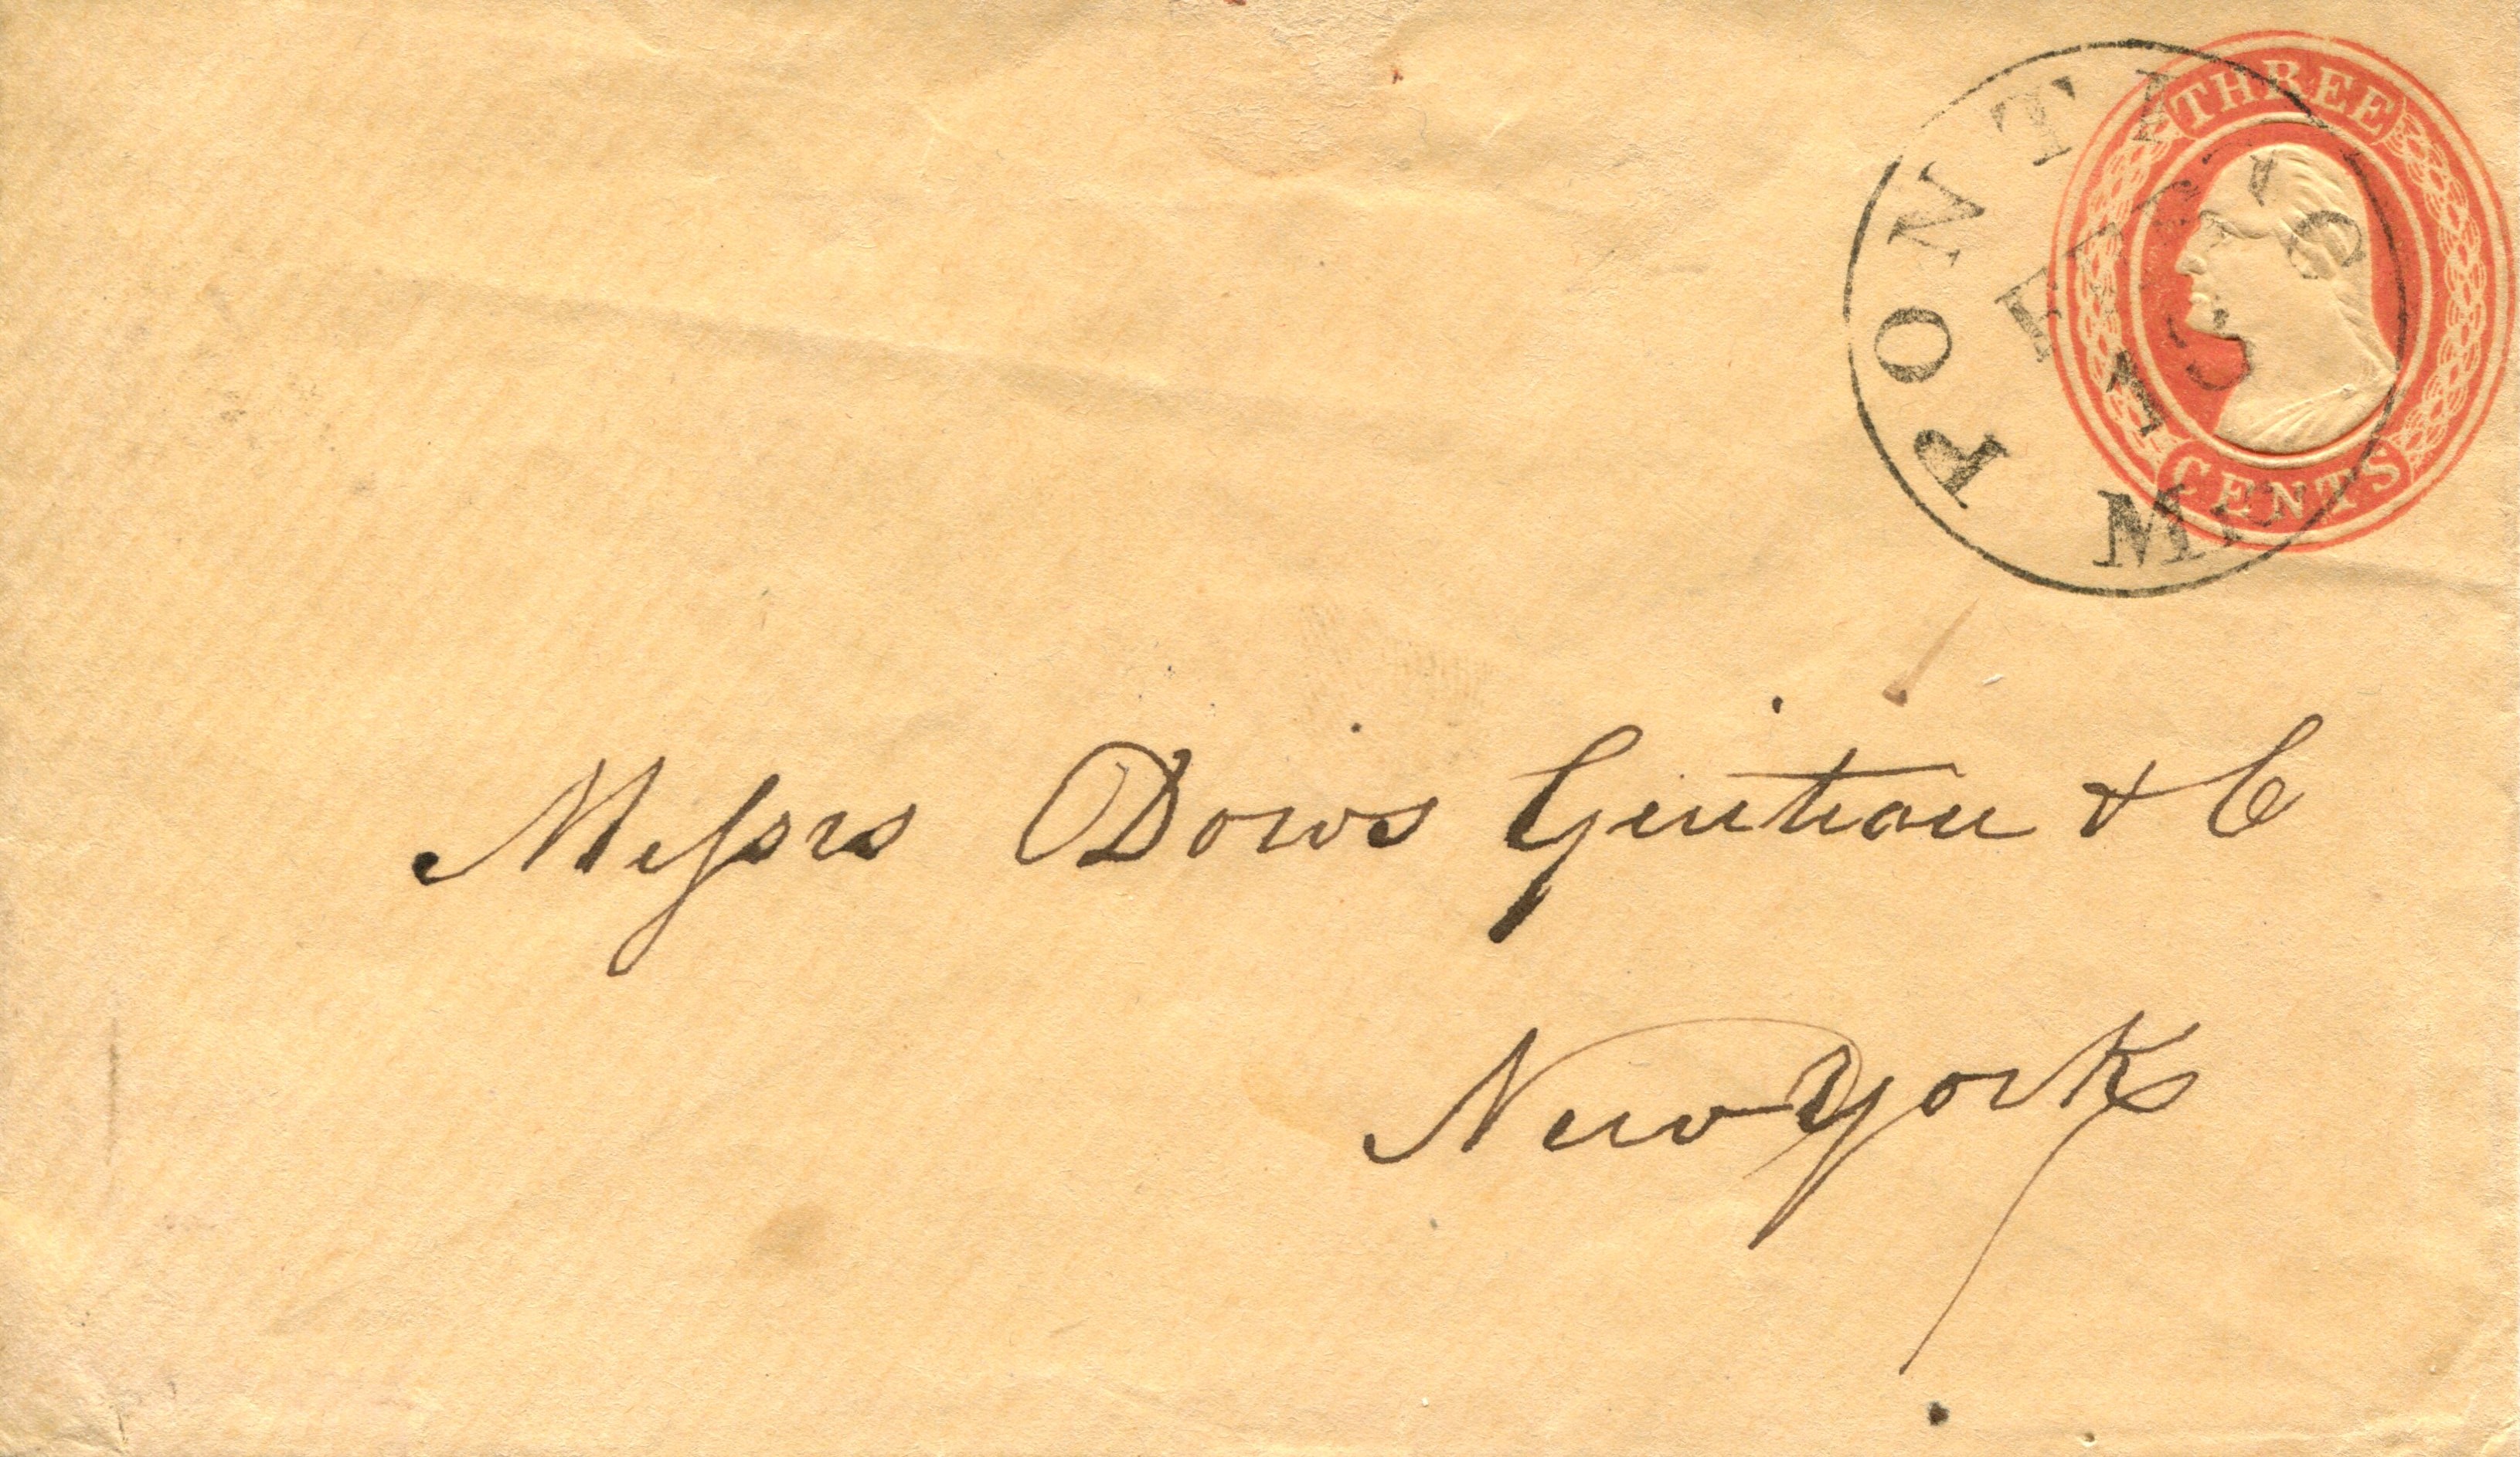 THREE
CENTS
PONTIAC
FEB
18
MI
Messrs Dows Guiteau & C
New York